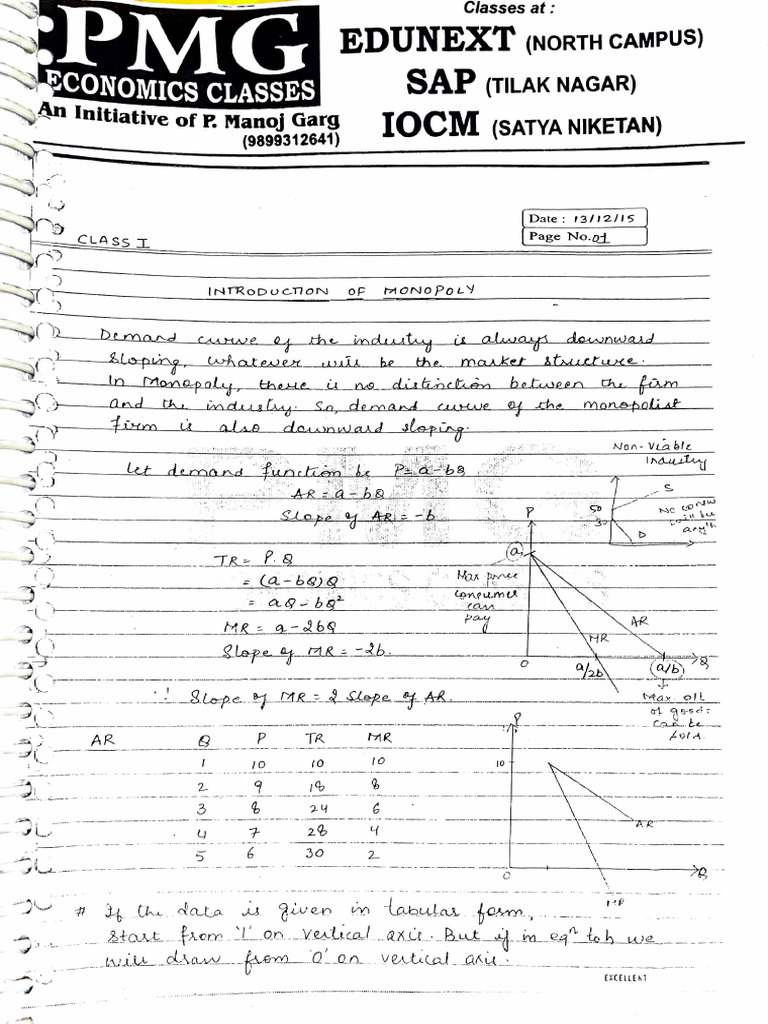 Classes at :
PMG
ECONOMICS CLASSES
An Initiative of P. Manoj Garg
(9899312641)
EDUNEXT (NORTH CAMPUS)
SAP (TILAK NAGAR)
IOCM (SATYA NIKETAN)
Date : 13/12/15
Page No. 01
CLASS I
INTRODUCTION OF MONOPOLY
Demand curve of the industry is always downward
sloping, whatever will be the market structure.
In Monopoly, there is no distinction between the firm
and the industry. So, demand curve of the monopolist
firm is also downward sloping.
Let demand function be P = a-bQ
AR = a-bQ
Slope of AR = -b
Non-Viable
Industry
S
50
30
D
TR = P.Q
= (a-bQ)Q
= aQ-bQ²
MR = a-2bQ
Slope of MR = -2b.
P
a
Max price
consumer
can
pay
AR
MR
O
a/2b
a/b
Q
∵ Slope of MR = 2 Slope of AR.
Max
of good
can be
sold.
AR Q P TR MR
1 10 10 10
2 9 18 8
3 8 24 6
4 7 28 4
5 6 30 2
P
10
AR
O
Q
MR
# If the data is given in tabular form,
start from '1' on vertical axis. But if in eqⁿ we
will draw from 'O' on vertical axis.
EXCELLENT